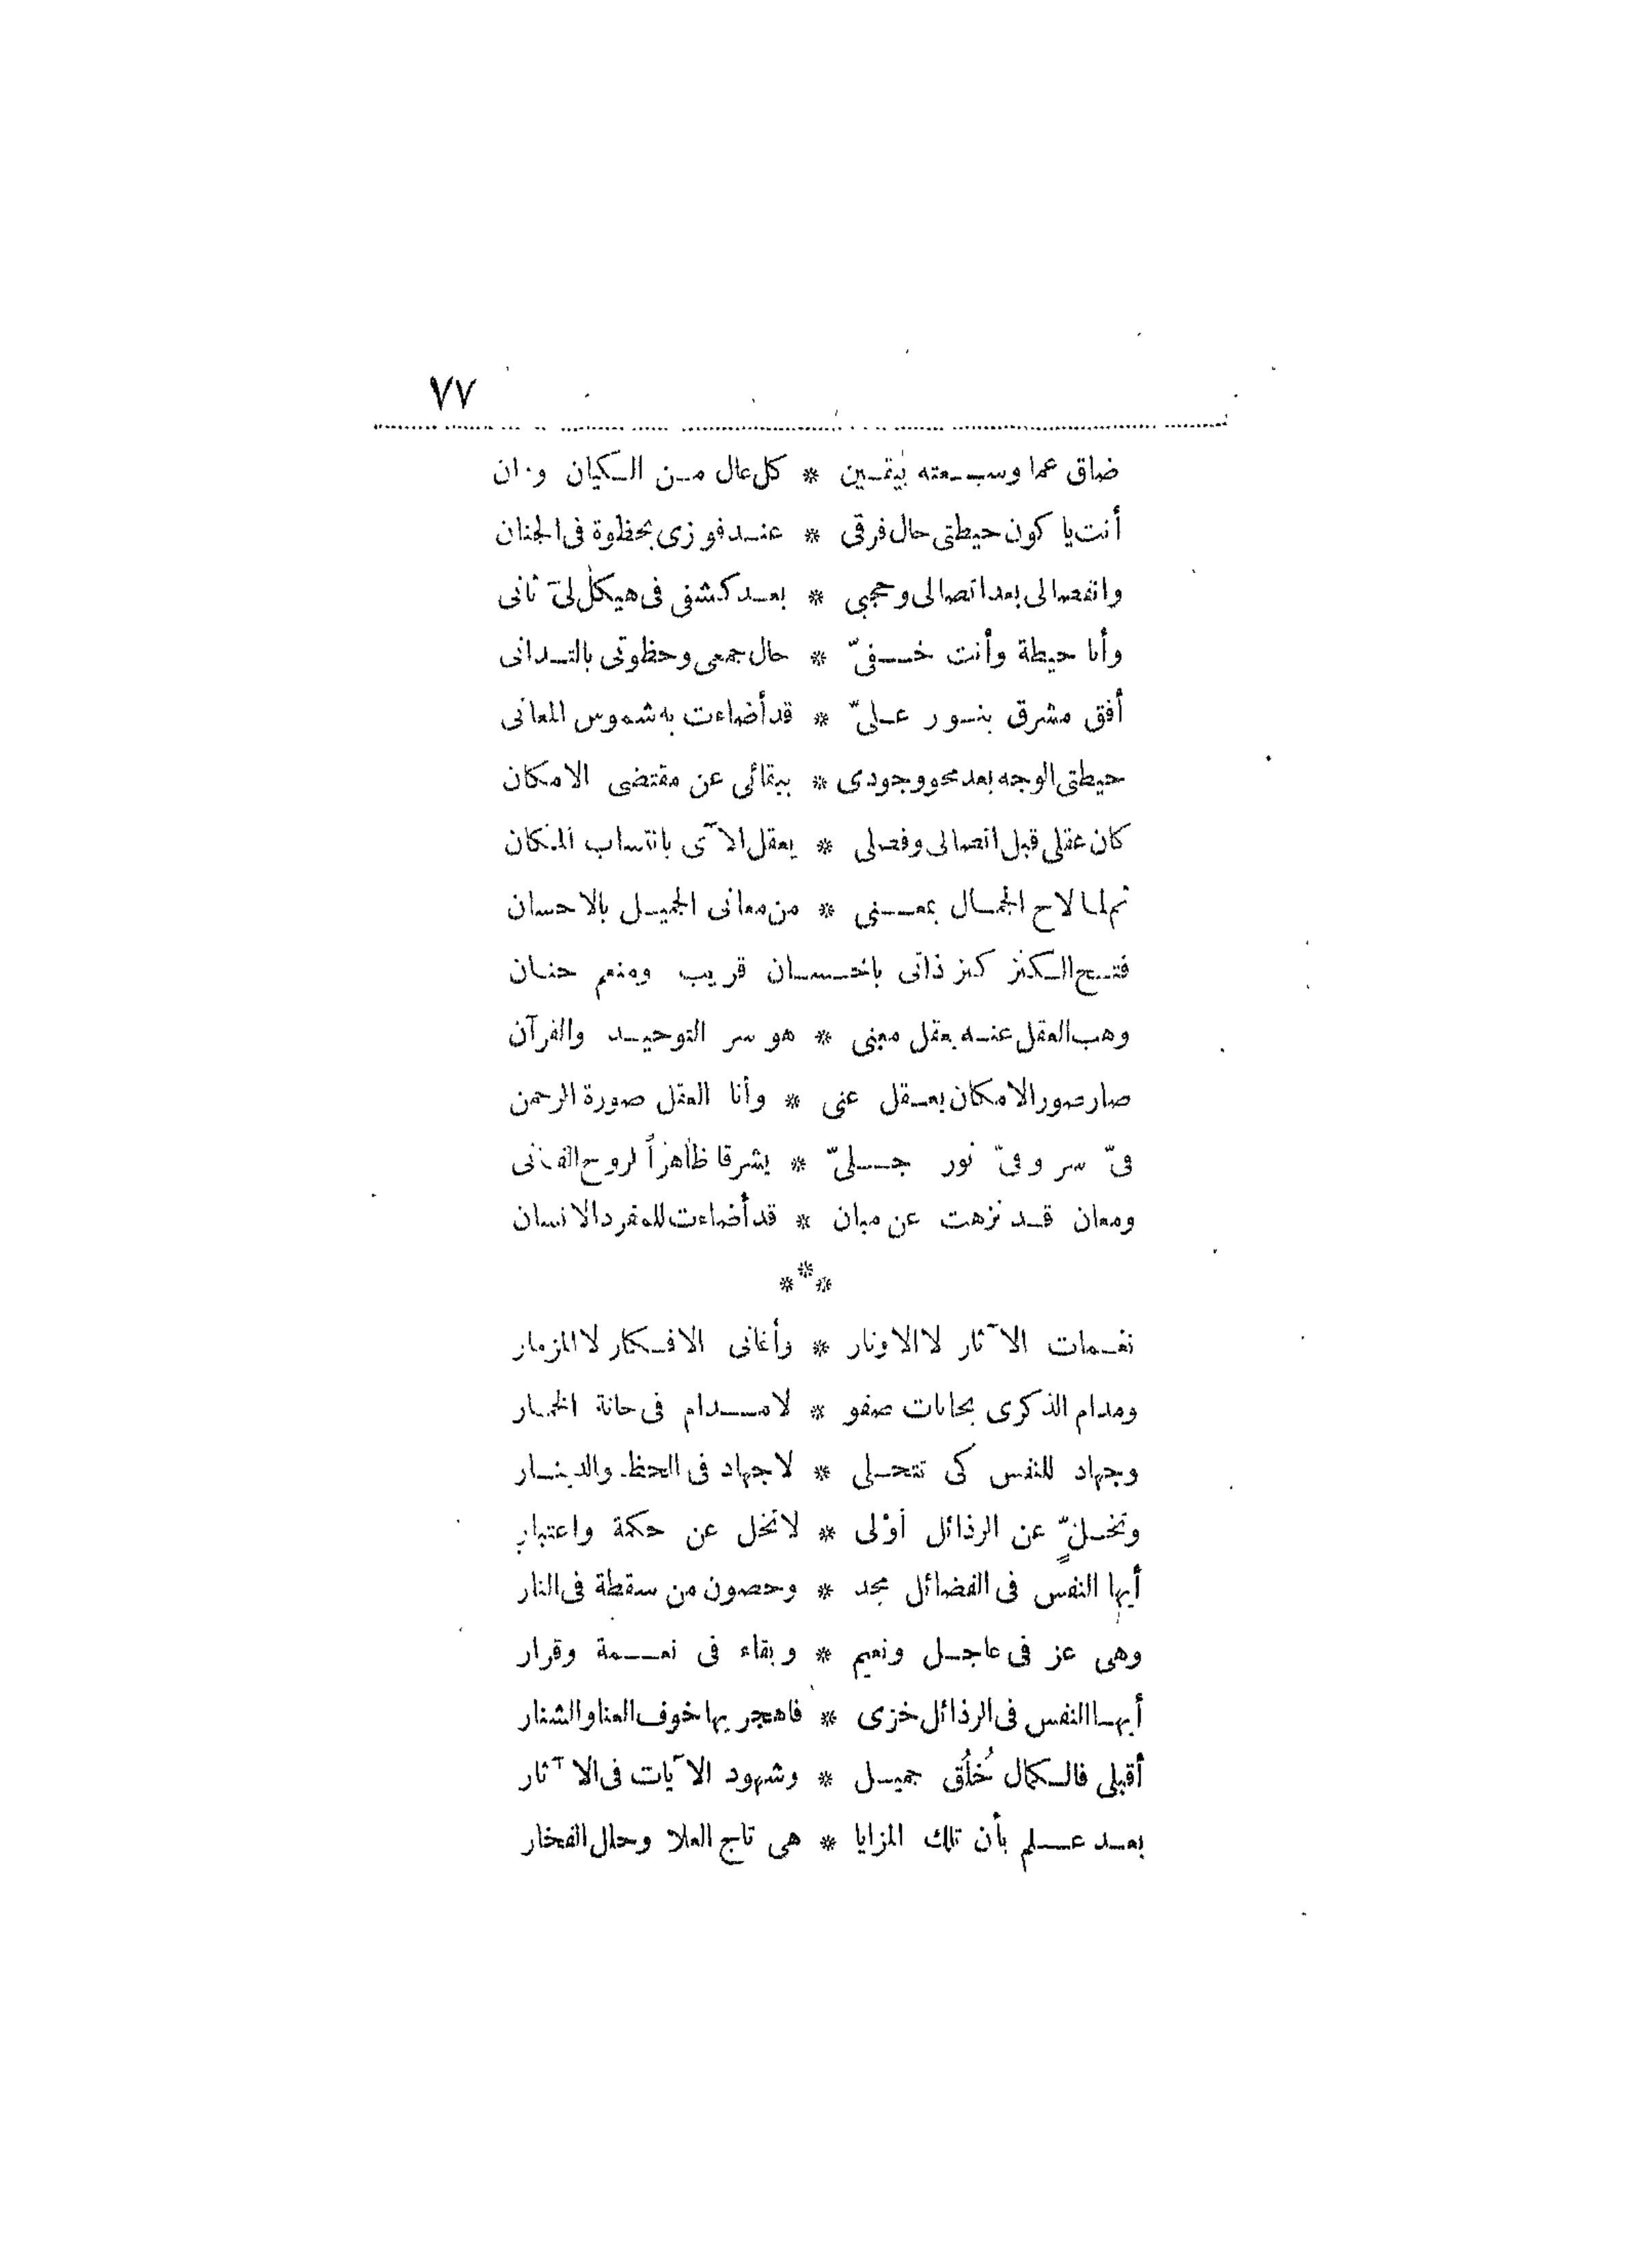 ٧٧
ضاق عما وسعته بيقين * كل عال من الكيان ودان
أنت يا كون حيطتى حال فرقى * عند فوزى بحظوة فى الجنان
وانفصالى بعد اتصالى وحجبى * بعد كشفى فى هيكل لى ثانى
وأنا حيطة وأنت خفىّ * حال جمعى وحظوتى بالتدانى
أفق مشرق بنور علىّ * قد أضاءت به شموس المعانى
حيطتى الوجه بعد محو وجودى * ببقائى عن مقتضى الامكان
كان عقلى قبل اتصالى وفصلى * يعقل الآى بانتساب المكان
ثم لما لاح الجمال بمعنى * من معانى الجميل بالاحسان
فتح الكنز كنز ذاتى قريب ومنعم حنان
وهب العقل عنه بعقل معنى * هو سر التوحيد والقرآن
صار صور الامكان بعقل عنى * وأنا العقل صورة الرحمن
فىّ سر وفىّ نور جلىّ * يشرقا ظاهراً لروح الفانى
ومعان قد نزهت عن مبان * قد أضاءت للمفرد الانسان
***
نغمات الآثار لا الاوتار * وأغانى الافكار لا المزمار
ومدام الذكرى بحانات صفو * لا مدام فى حانة الخمار
وجهاد للنفس كى تتحلى * لا جهاد فى الحظ والدينار
وتخلٍّ عن الرذائل أوْلى * لا تخل عن حكمة واعتبار
أيها النفس فى الفضائل مجد * وحصون من سقطة فى النار
وهى عز فى عاجل ونعيم * وبقاء فى نعمة وقرار
أيها النفس فى الرذائل خزى * فاهجريها خوف العنا والشنار
أقبلى فالكمال خُلُق جميل * وشهود الآيات فى الآثار
بعد علم بأن تلك المزايا * هى تاج العلا وحلل الفخار